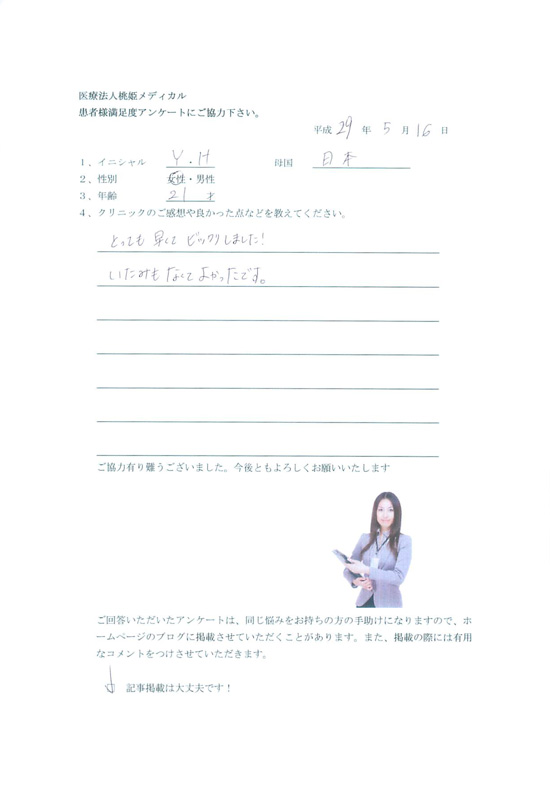 医療法人桃姫メディカル
患者様満足度アンケートにご協力下さい。
平成 29 年 5 月 16 日
1、イニシャル Y.H 母国 日本
2、性別 女性・男性
3、年齢 21 才
4、クリニックのご感想や良かった点などを教えてください。
とっても早くてビックリしました!
いたみもなくてよかったです。
ご協力有り難うございました。今後ともよろしくお願いいたします
ご回答いただいたアンケートは、同じ悩みをお持ちの方の手助けになりますので、ホ
ームページのブログに掲載させていただくことがあります。また、掲載の際には有用
なコメントをつけさせていただきます。
記事掲載は大丈夫です!